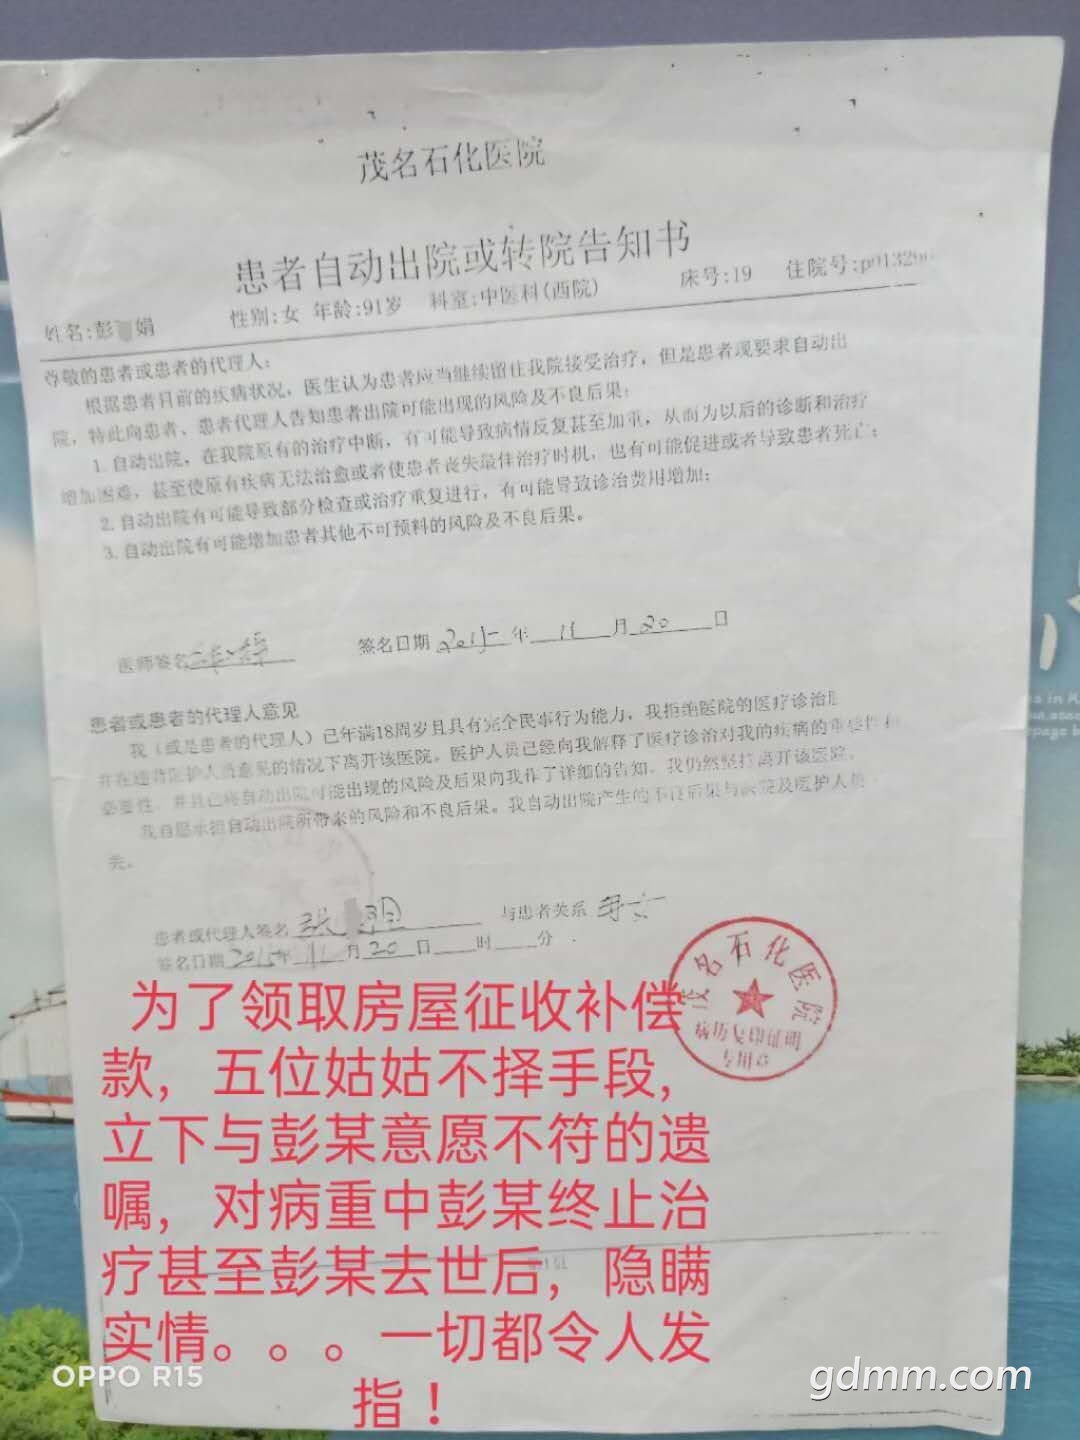 茂名石化医院
患者自动出院或转院告知书
姓名:彭 娟 性别:女 年龄:91岁 科室:中医科(西院) 床号:19 住院号:p01326
尊敬的患者或患者的代理人:
根据患者目前的疾病状况，医生认为患者应当继续留住我院接受治疗，但是患者现要求自动出
院，特此向患者、患者代理人告知患者出院可能出现的风险及不良后果:
1.自动出院，在我院原有的治疗中断，有可能导致病情反复甚至加重，从而为以后的诊断和治疗
增加困难，甚至使原有疾病无法治愈或者使患者丧失最佳治疗时机，也有可能促进或者导致患者死亡;
2.自动出院有可能导致部分检查或治疗重复进行，有可能导致诊治费用增加;
3.自动出院有可能增加患者其他不可预料的风险及不良后果。
医师签名 签名日期 2015 年 11 月 20 日
患者或患者的代理人意见
我（或是患者的代理人）已年满18周岁且具有完全民事行为能力，我拒绝医院的医疗诊治
并在违背医护人员意见的情况下离开该医院。医护人员已经向我解释了医疗诊治对我的疾病的重要性和
必要性，并且已将自动出院可能出现的风险及后果向我作了详细的告知。我仍然坚持离开该医院。
我自愿承担自动出院所带来的风险和不良后果。我自动出院产生的不良后果与医院及医护人员
关。
患者或代理人签名 张 与患者关系 母女
签名日期 2015年 11 月 20 日 时 分
茂名石化医院
病历复印证明
专用章
为了领取房屋征收补偿
款，五位姑姑不择手段，
立下与彭某意愿不符的遗
嘱，对病重中彭某终止治
疗甚至彭某去世后，隐瞒
实情。。。一切都令人发
指！
第1页
OPPO R15
gdmm.com